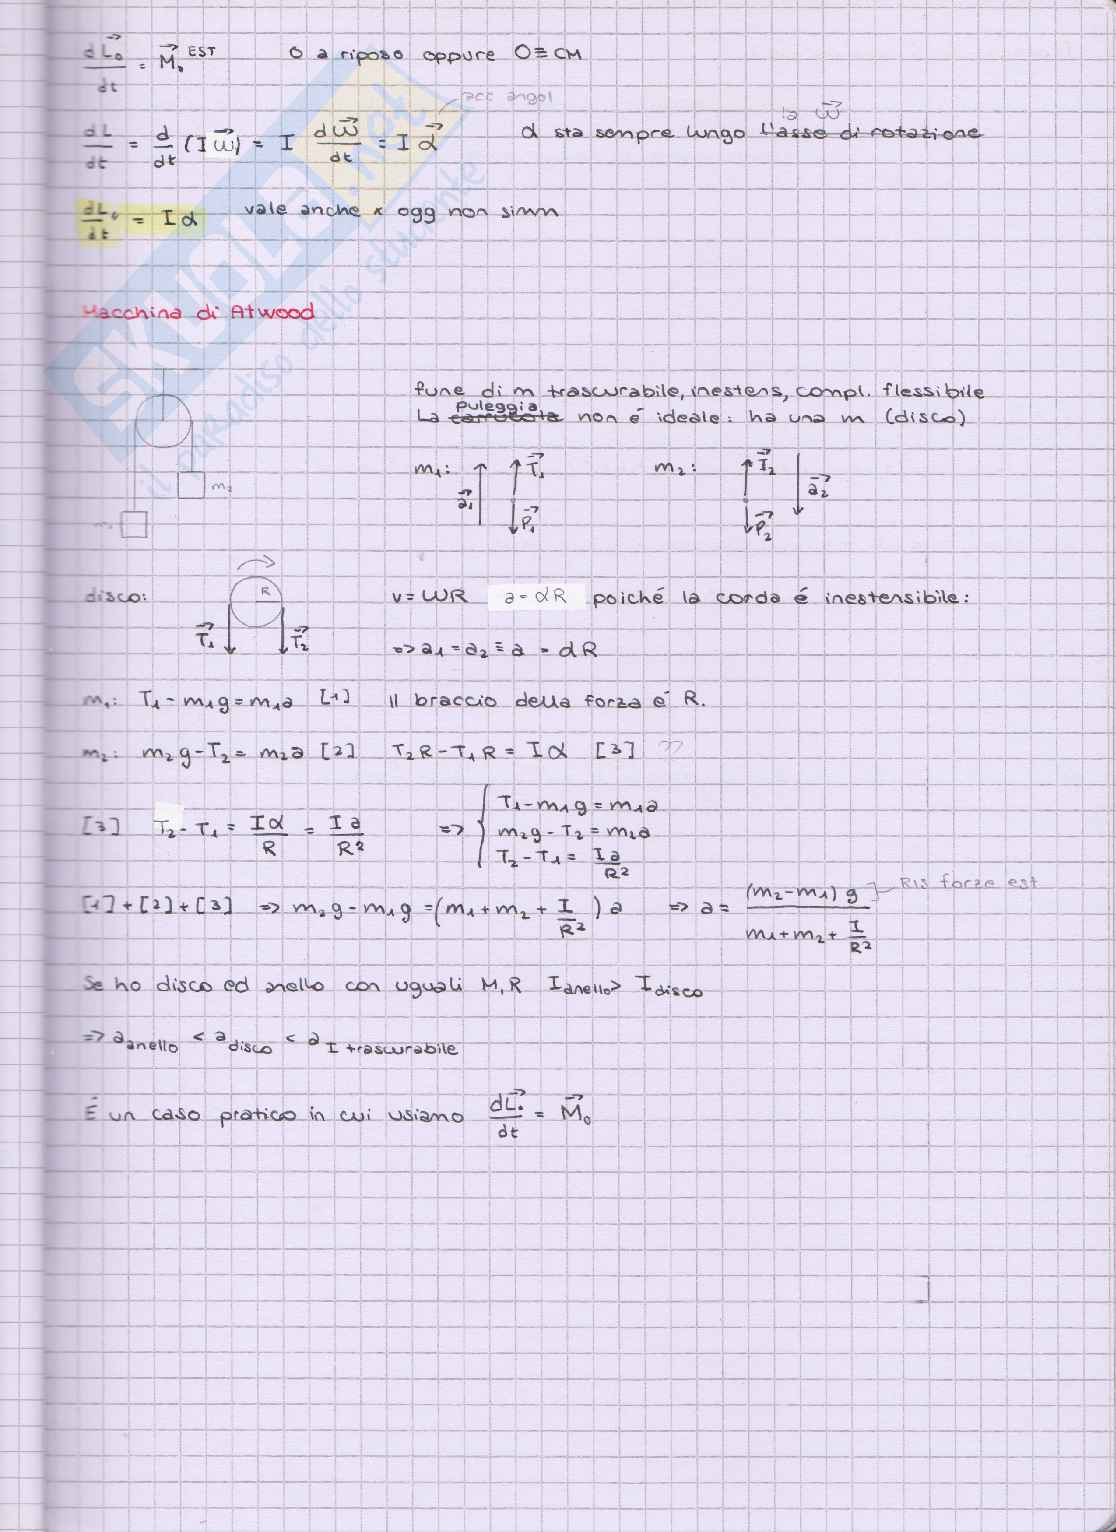 dL₀/dt = M₀^EST   O a riposo oppure O≡CM
acc angol
dL/dt = d/dt (Iω) = I dω/dt = Iα   α sta sempre lungo l'asse di rotazione ω
dL₀/dt = Iα   vale anche x ogg non simm
Macchina di Atwood
fune di m trascurabile, inestens, compl. flessibile
La carrucola puleggia non é ideale: ha una m (disco)
m₁: a₁ T₁ P₁   m₂: T₂ P₂ a₂
m₂
m₁
disco: R T₁ T₂   v = ωR   a = αR   poiché la corda é inestensibile:
=> a₁ = a₂ ≡ a = αR
m₁: T₁ - m₁g = m₁a [1]   Il braccio della forza é R.
m₂: m₂g - T₂ = m₂a [2]   T₂R - T₁R = Iα [3]
[3] T₂ - T₁ = Iα/R = Ia/R²   => { T₁ - m₁g = m₁a
m₂g - T₂ = m₂a
T₂ - T₁ = Ia/R²
[1]+[2]+[3] => m₂g - m₁g = (m₁+m₂+I/R²) a   => a = (m₂-m₁)g / (m₁+m₂+I/R²)   Ris forze est
Se ho disco ed anello con uguali M, R   I anello > I disco
=> a anello < a disco < a I trascurabile
É un caso pratico in cui usiamo dL₀/dt = M₀
SKUOLA.net
il paradiso dello studente